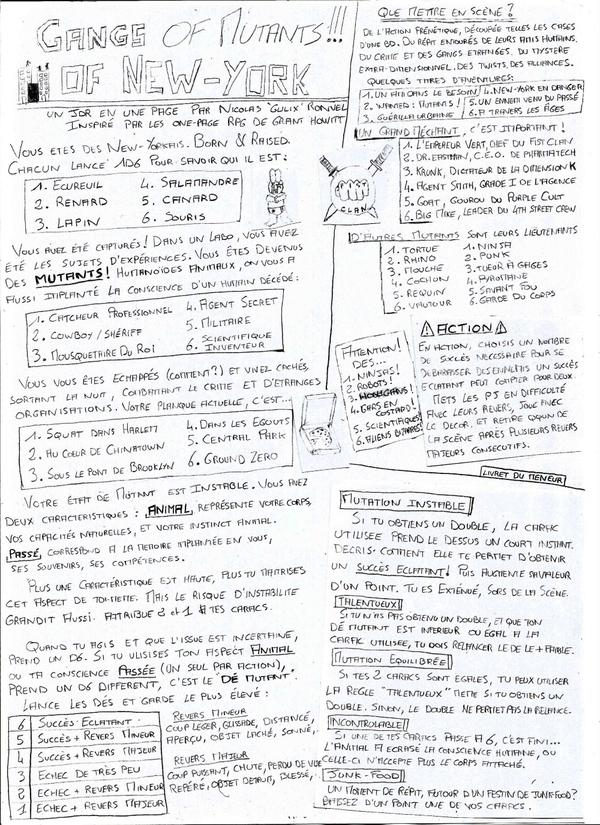 GANGS OF MUTANTS!!!
OF NEW-YORK
UN JDR EN UNE PAGE PAR NICOLAS "GULIX" RONVEL
INSPIRÉ PAR LES ONE-PAGE RPG DE GRANT HOWITT
VOUS ETES DES NEW-YORKAIS. BORN & RAISED.
CHACUN LANCE 1D6 POUR SAVOIR QUI IL EST:
1. ECUREUIL
2. RENARD
3. LAPIN
4. SALAMANDRE
5. CANARD
6. SOURIS
VOUS AVEZ ÉTÉ CAPTURÉS! DANS UN LABO, VOUS AVEZ
ÉTÉ LES SUJETS D'EXPÉRIENCES. VOUS ÊTES DEVENUS
DES MUTANTS! HUMANOÏDES ANIMAUX, ON VOUS A
AUSSI IMPLANTÉ LA CONSCIENCE D'UN HUMAIN DÉCÉDÉ:
1. CATCHEUR PROFESSIONNEL
2. COWBOY/SHÉRIFF
3. MOUSQUETAIRE DU ROI
4. AGENT SECRET
5. MILITAIRE
6. SCIENTIFIQUE
INVENTEUR
VOUS VOUS ÊTES ECHAPPÉS (COMMENT?) ET VIVEZ CACHÉS,
SORTANT LA NUIT, COMBATTANT LE CRIME ET D'ETRANGES
ORGANISATIONS. VOTRE PLANQUE ACTUELLE, C'EST...
1. SQUAT DANS HARLEM
2. AU COEUR DE CHINATOWN
3. SOUS LE PONT DE BROOKLYN
4. DANS LES EGOUTS
5. CENTRAL PARK
6. GROUND ZERO
VOTRE ÉTAT DE MUTANT EST INSTABLE. VOUS AVEZ
DEUX CARACTERISTIQUES : ANIMAL, REPRÉSENTE VOTRE CORPS,
VOS CAPACITÉS NATURELLES, ET VOTRE INSTINCT ANIMAL.
PASSÉ, CORRESPOND A LA MEMOIRE IMPLANTÉE EN VOUS,
SES SOUVENIRS, SES COMPÉTENCES.
PLUS UNE CARACTÉRISTIQUE EST HAUTE, PLUS TU MAITRISES
CET ASPECT DE TOI-MEME. MAIS LE RISQUE D'INSTABILITE
GRANDIT AUSSI. ATTRIBUE 2 ET 1 A TES CARACS.
QUAND TU AGIS ET QUE L'ISSUE EST INCERTAINE,
PREND UN D6. SI TU ULISES TON ASPECT ANIMAL
OU TA CONSCIENCE PASSÉE (UN SEUL PAR ACTION),
PREND UN D6 DIFFERENT, C'EST LE "DÉ MUTANT".
LANCE LES DÉS ET GARDE LE PLUS ÉLEVÉ:
6 SUCCÈS ECLATANT
5 SUCCÈS + REVERS MINEUR
4 SUCCÈS + REVERS MAJEUR
3 ECHEC DE TRÈS PEU
2 ECHEC + REVERS MINEUR
1 ECHEC + REVERS MAJEUR
REVERS MINEUR
COUP LEGER, GLISSADE, DISTANCÉ,
APERÇU, OBJET LACHÉ, SONNÉ,...
REVERS MAJEUR
COUP PUISSANT, CHUTE, PERDU DE VUE
REPÉRÉ, OBJET DETRUIT, BLESSÉ,...
CLAN
QUE METTRE EN SCÈNE?
DE L'ACTION FRÉNÉTIQUE, DÉCOUPÉE TELLES LES CASES
D'UNE BD. DU RÉPIT ENTOURÉS DE LEURS AMIS HUMAINS.
DU CRIME ET DES GANGS ETRANGES. DU MYSTERE
EXTRA-DIMENSIONNEL. DES TWISTS, DES ALLIANCES.
QUELQUES TITRES D'AVENTURES:
1. UN AMI DANS LE BESOIN
2. WANTED: MUTANTS!
3. GUÉRILLA URBAINE
4. NEW-YORK EN DANGER
5. UN ENNEMI VENU DU PASSÉ
6. A TRAVERS LES ÂGES
UN GRAND MÉCHANT, C'EST IMPORTANT!
1. L'EMPEREUR VERT, CHEF DU FIST CLAN
2. DR. EASTMAN, C.E.O. DE PHARMATECH
3. KRUNK, DICTATEUR DE LA DIMENSION K
4. AGENT SMITH, GRADE I DE L'AGENCE
5. GOAT, GOUROU DU PURPLE CULT
6. BIG MIKE, LEADER DU 4TH STREET CREW
D'AUTRES MUTANTS SONT LEURS LIEUTENANTS
1. TORTUE
2. RHINO
3. MOUCHE
4. COCHON
5. REQUIN
6. VAUTOUR
1. NINJA
2. PUNK
3. TUEUR A GAGES
4. PYROMANE
5. SAVANT FOU
6. GARDE DU CORPS
ATTENTION!
DES...
1. NINJAS!
2. ROBOTS!
3. HOOLIGANS!
4. GARS EN
COSTARD!
5. SCIENTIFIQUES!
6. ALIENS BIZARRES!
ACTION
EN ACTION, CHOISIS UN NOMBRE
DE SUCCÈS NECESSAIRE POUR SE
DEBARRASSER DES ENNEMIS. UN SUCCÈS
ECLATANT PEUT COMPTER POUR DEUX.
METS LES PJ EN DIFFICULTÉ
AVEC LEURS REVERS, JOUE AVEC
LE DECOR, ET RETIRE QQUN DE
LA SCÈNE APRÈS PLUSIEURS REVERS
MAJEURS CONSECUTIFS.
LIVRET DU MENEUR
MUTATION INSTABLE
SI TU OBTIENS UN DOUBLE, LA CARAC
UTILISEE PREND LE DESSUS UN COURT INSTANT.
DECRIS COMMENT ELLE TE PERMET D'OBTENIR
UN SUCCÈS ECLATANT! PUIS AUGMENTE SA VALEUR
D'UN POINT. TU ES EXTÉNUÉ, SORS DE LA SCÈNE.
TALENTUEUX
SI TU N'AS PAS OBTENU UN DOUBLE, ET QUE TON
DÉ MUTANT EST INFERIEUR OU EGAL A LA
CARAC UTILISÉE, TU DOIS RELANCER LE DE LE + FAIBLE.
MUTATION EQUILIBRÉE
SI TES 2 CARACS SONT EGALES, TU PEUX UTILISER
LA REGLE "TALENTUEUX" MEME SI TU OBTIENS UN
DOUBLE. SINON, LE DOUBLE NE PERMET PAS LA RELANCE.
INCONTROLABLE
SI UNE DE TES CARACS PASSE A 6, C'EST FINI...
L'ANIMAL A ECRASÉ LA CONSCIENCE HUMAINE, OU
CELLE-CI N'ACCEPTE PLUS LE CORPS ATTACHÉ.
JUNK-FOOD
UN MOMENT DE RÉPIT, AUTOUR D'UN FESTIN DE JUNK-FOOD?
BAISSEZ D'UN POINT UNE DE VOS CARACS.